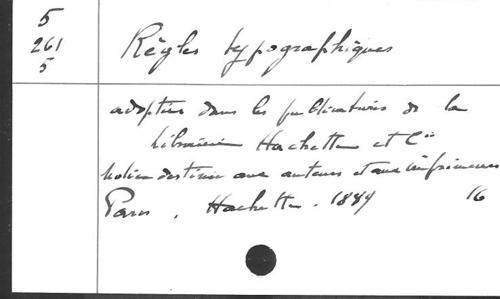 5
261
5
Règles typographiques
adoptées dans les publications de la
Librairie Hachette et Cie
Notice destinée aux auteurs et aux imprimeurs
Paris, Hachette. 1889 16